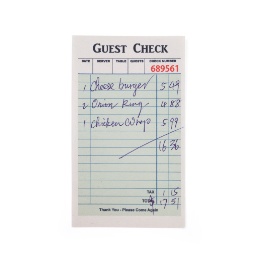 GUEST CHECK
DATE SERVER TABLE GUESTS CHECK NUMBER
689561
1 Cheese burger 5 49
2 Onion Ring 4 88
1 Chicken Wrap 5 99
16 36
TAX 1 15
TOTAL 17 51
Thank You - Please Come Again